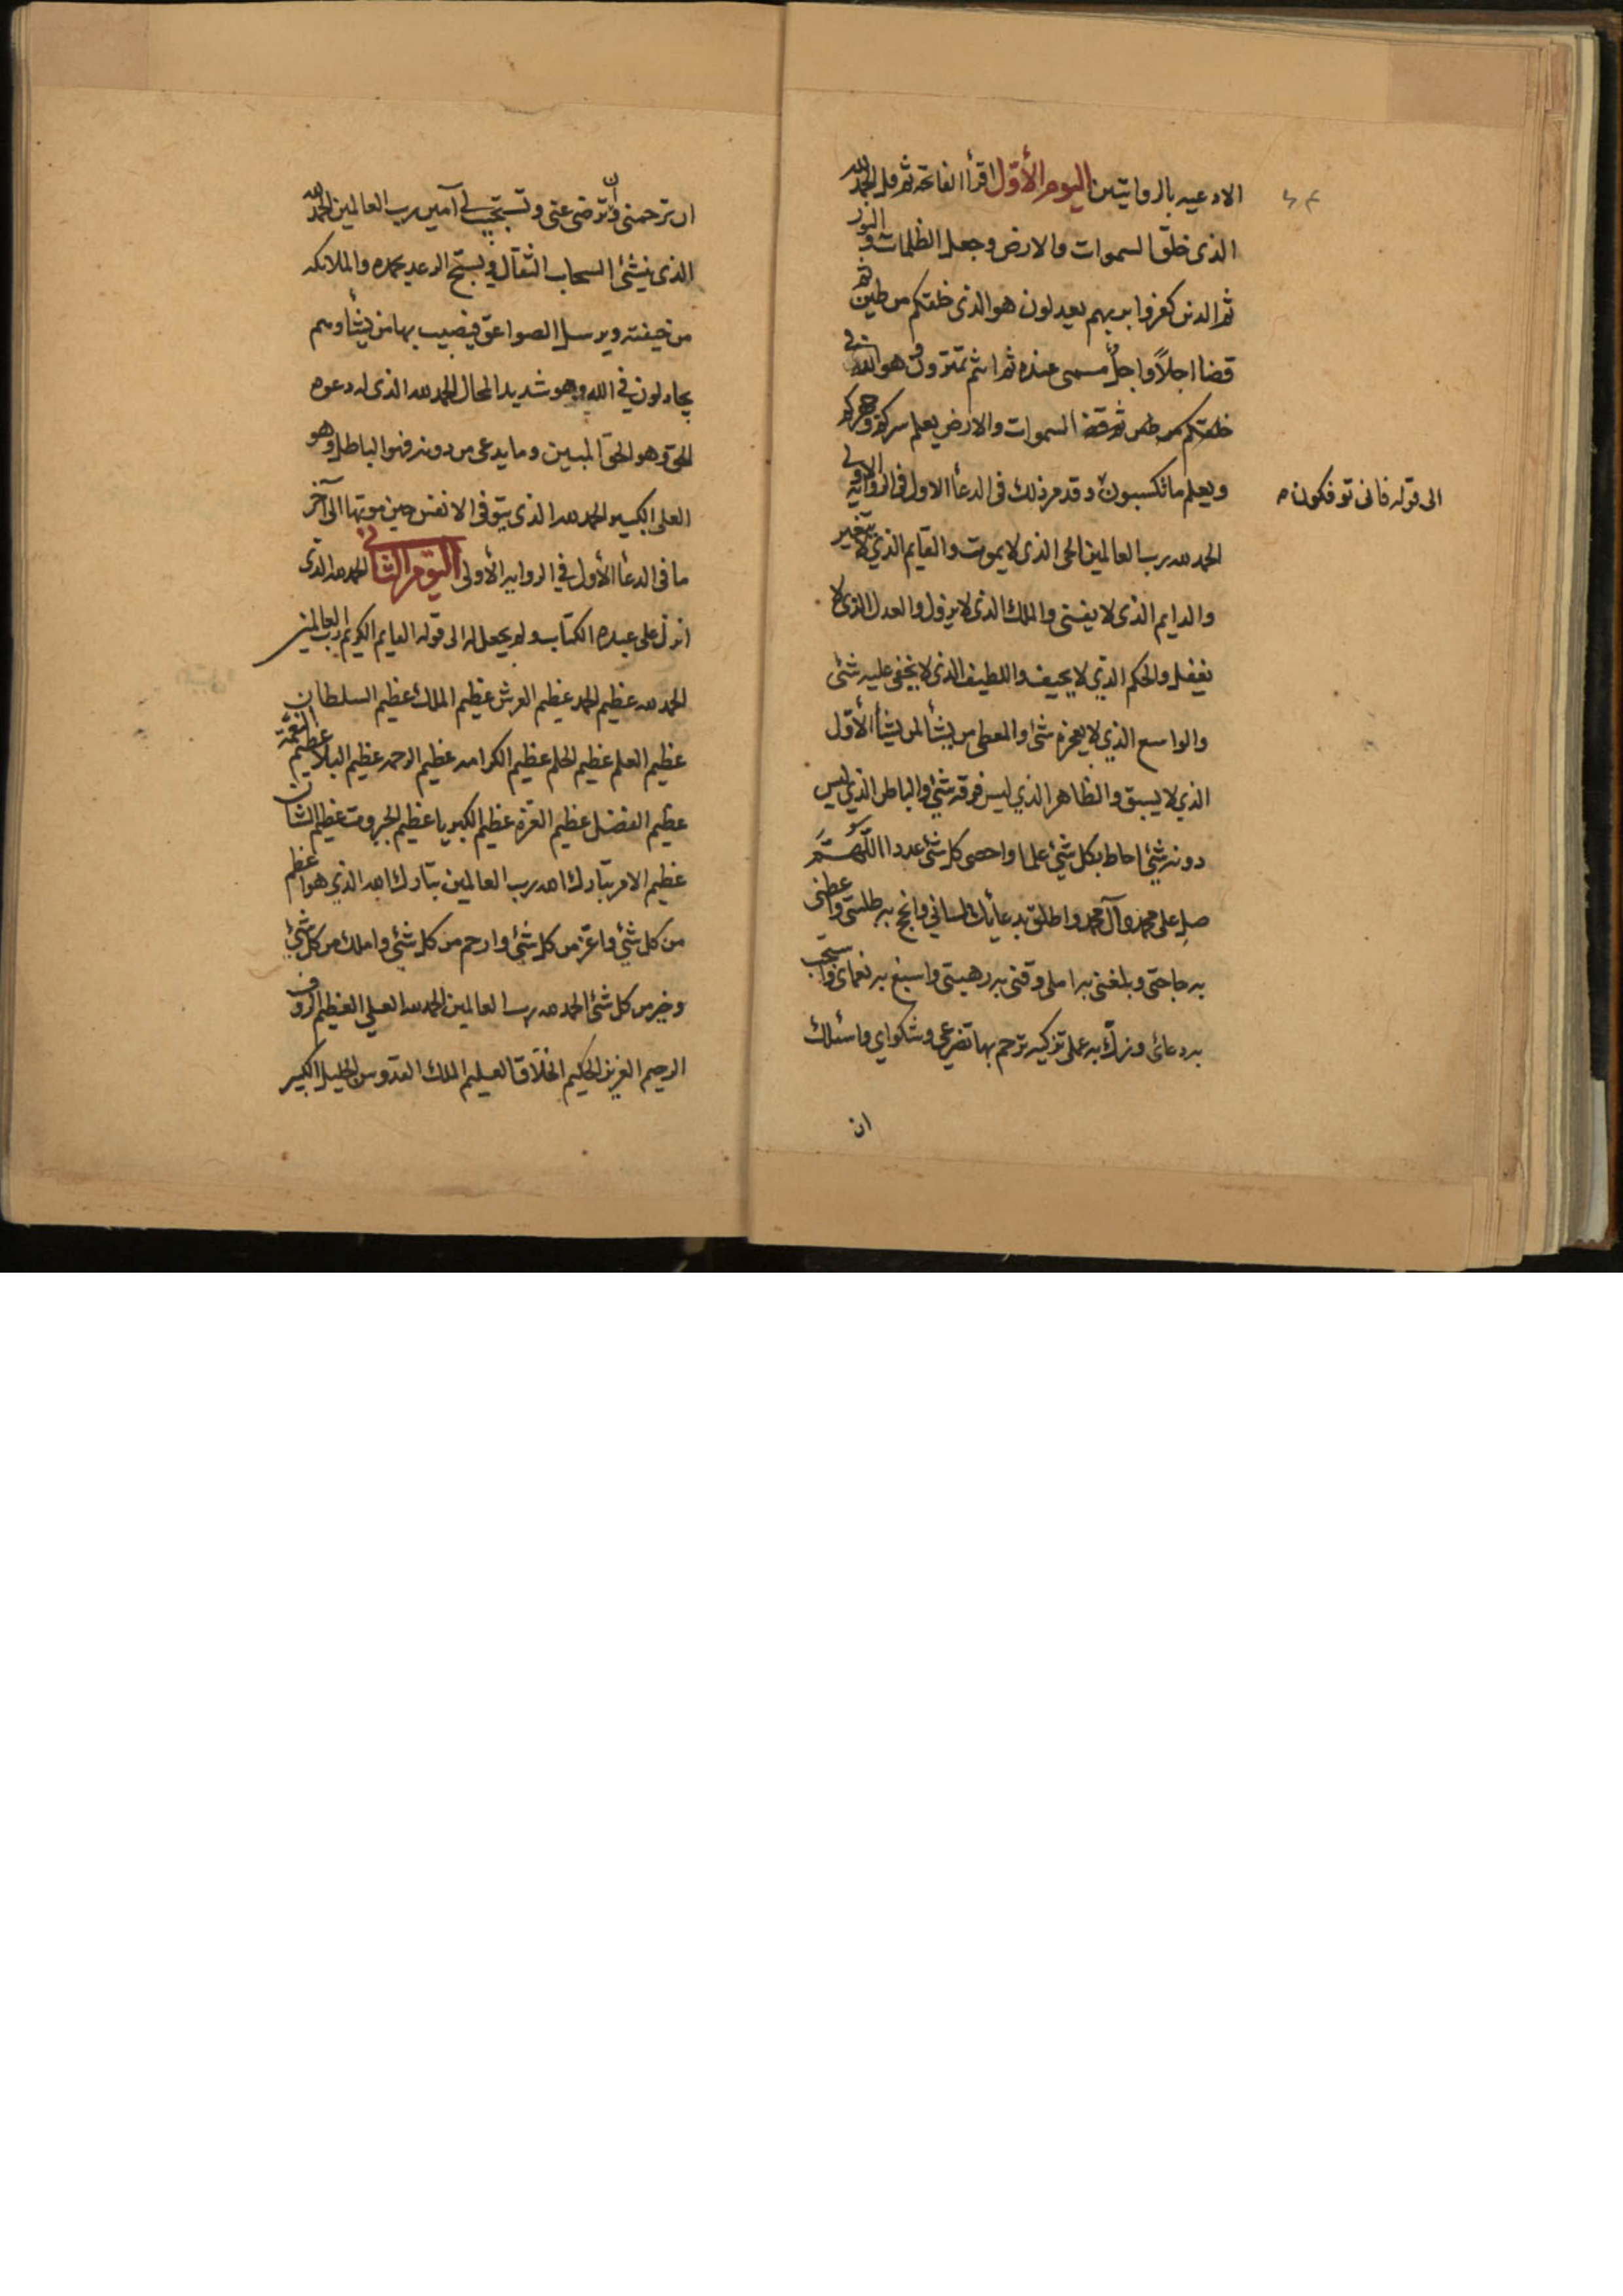 الادعيه بالروايتين اليوم الأوّل اقرأ الفاتحة ثم قل الحمد لله
الذى خلق السموات والارض وجعل الظلمات والنور
ثم الذين كفروا بربهم يعدلون هو الذى خلقكم من طين ثم
قضا اجلاً واجل مسمى عنده ثم انتم تمترون وهو الله فى
السموات والارض يعلم سركم وجهركم
ويعلم ما تكسبون وقد مر ذلك فى الدعأ الاول فى الرواية الاولى
الى قوله فانى توفكون
الحمد لله رب العالمين الحى الذى لا يموت والقايم الذي لا يتغير
والدايم الذى لا يفنى والملك الذى لا يزول والعدل الذى لا
يغفل والحكم الذي لا يحيف واللطيف الذى لا يخفى عليه شئ
والواسع الذي لا يعجزه شئ والمعطى من يشأ لمن يشأ الأوّل
الذي لا يسبق والظاهر الذي ليس فوقه شئ والباطن الذي ليس
دونه شئ احاط بكل شئ علما واحصى كل شئ عددا اللّهمّ
صل على محمد وآل محمد واطلق بدعائك لسانى وانجح به طلبتى واعطنى
به حاجتى وبلغنى به املى وقنى به رهبتى واسبغ به نعماى واستجب
به دعائى وزكّ به عملى تزكيه ترحم بها تضرعي وشكواي واسئلك
ان
ان ترحمنى وان ترضى عنى وتستجيب لى آمين رب العالمين الحمد لله
الذى ينشئ السحاب الثقال ويسبّح الرعد بحمده والملائكه
من خيفته ويرسل الصواعق فيصيب بها من يشأ وهم
يجادلون في الله وهو شديد المحال الحمد لله الذى له دعوه
الحق وهو الحق المبين وما يدعى من دونه فهو الباطل وهو
العلى الكبير الحمد لله الذى يتوفى الانفس حين موتها الى آخر
ما فى الدعأ الأول في الروايه الأولى اليوم الثانى الحمد لله الذى
انزل على عبده الكتاب ولم يجعل له الى قوله القايم الكريم رب العالمين
الحمد لله عظيم الحمد عظيم العرش عظيم الملك عظيم السلطان
عظيم العلم عظيم الحلم عظيم الكرامه عظيم الرحمه عظيم البلا عظيم النعمة
عظيم الفضل عظيم العزه عظيم الكبريا عظيم الجبروت عظيم الشان
عظيم الامر تبارك الله رب العالمين تبارك الله الذي هو اعظم
من كل شئ واعزّ من كل شئ وارحم من كل شئ واملك من كل شئ
وخير من كل شئ الحمد لله رب العالمين الحمد لله العلي العظيم الروف
الرحيم العزيز الحكيم الخلاق العليم الملك القدوس الجليل الكبير